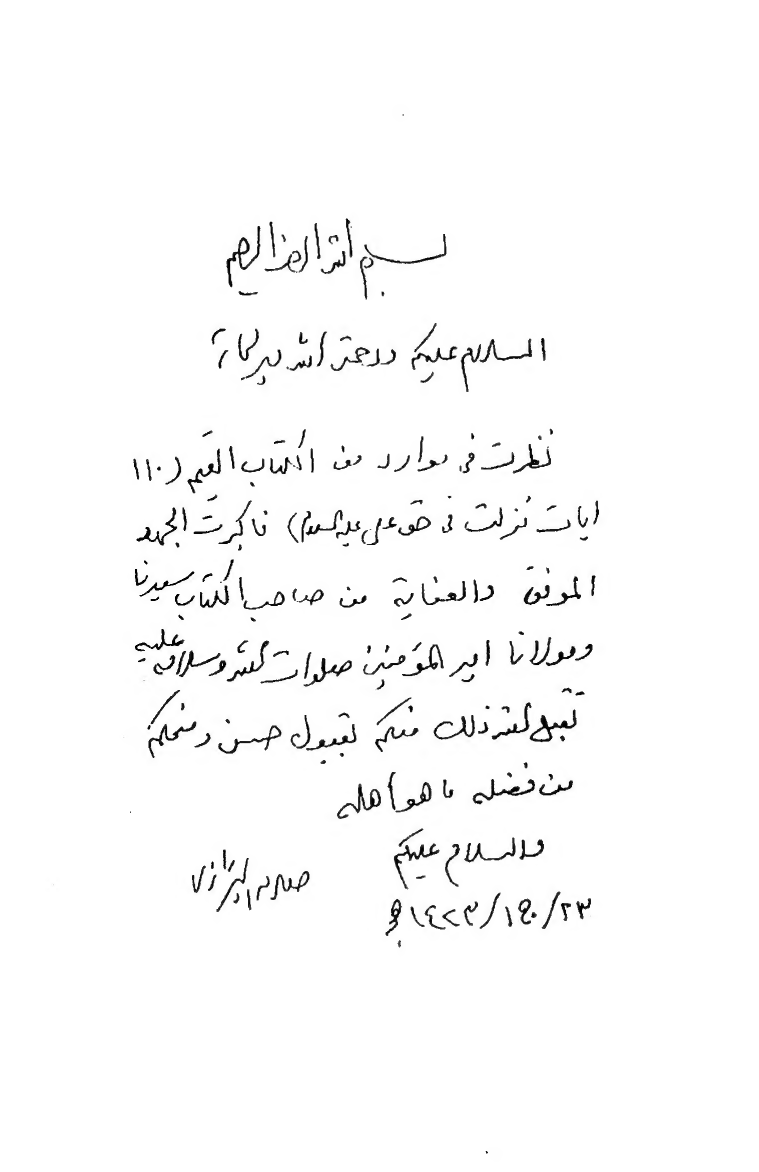 بسم الله الرحمن الرحيم
السلام عليكم ورحمة الله وبركاته
نظرت في موارد من الكتاب القيم (١١٠
ايات نزلت في حق علي عليه السلام) فاكبرت الجهود
الموفق والعناية من صاحب الكتاب سيدنا
ومولانا امير المؤمنين صلوات الله وسلامه عليه
تقبل الله ذلك منكم بقبول حسن ومنحكم
من فضله ما هو أهله
والسلام عليكم
٢٣/ /١٤٢٣